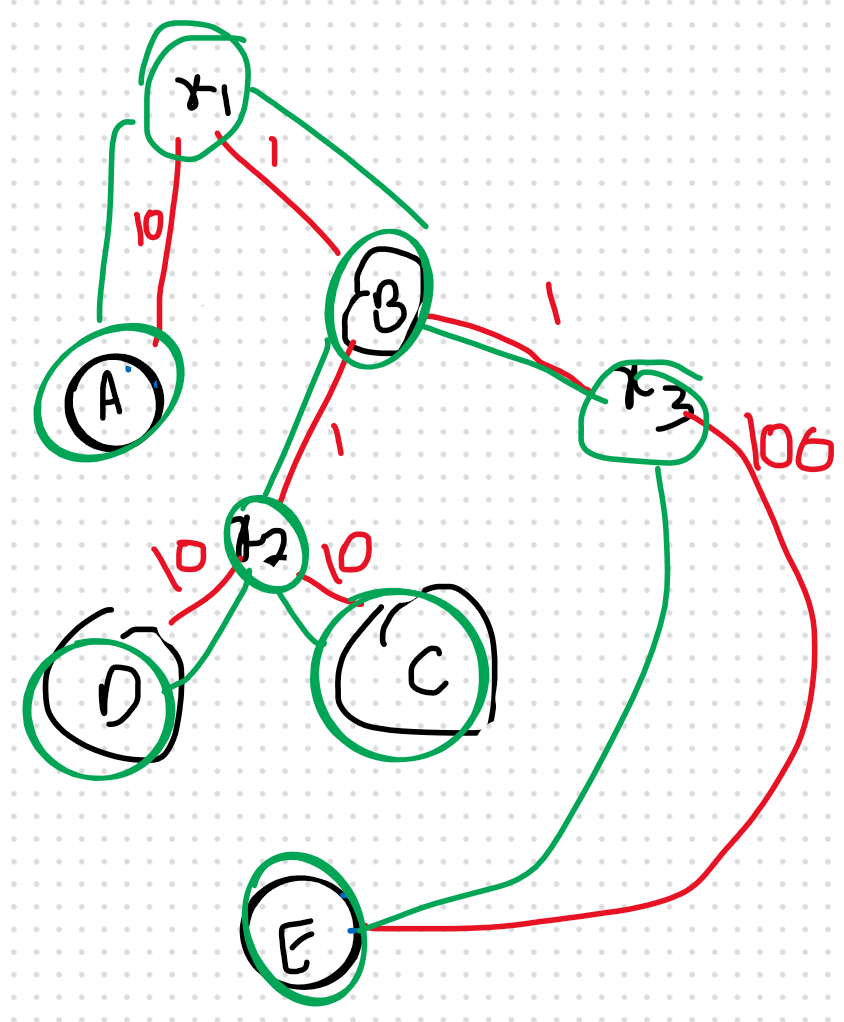 x1
1
10
B
1
A
x3
100
1
x2
10
10
D
C
E